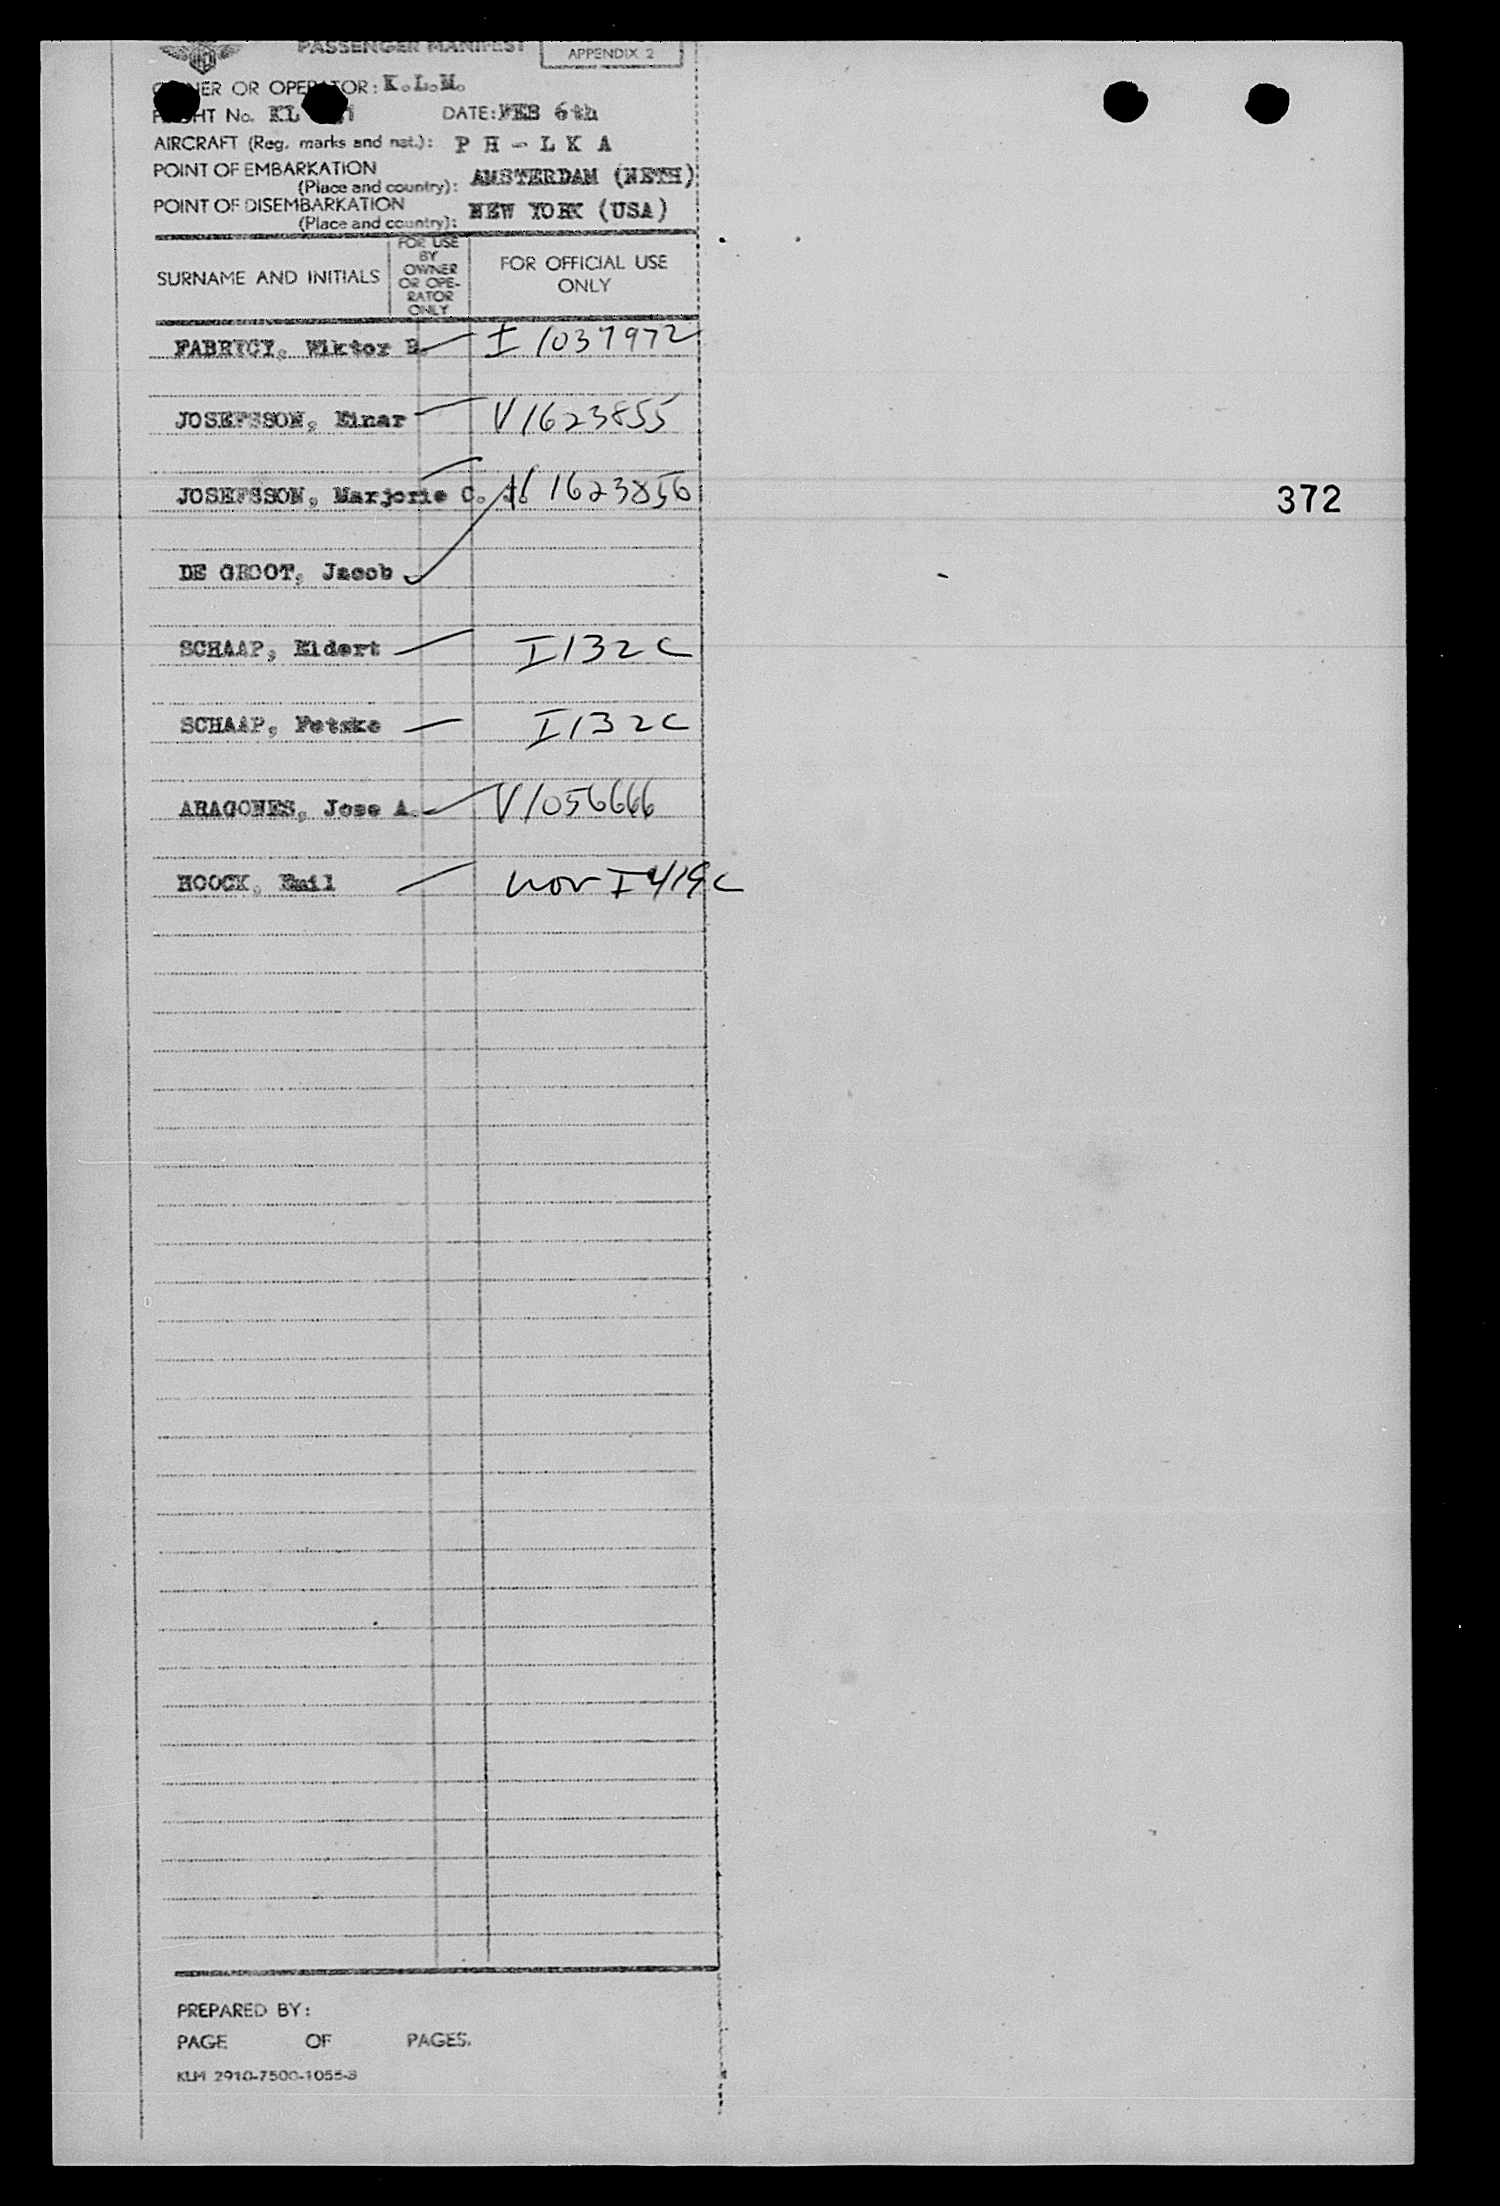 PASSENGER MANIFEST
APPENDIX 2
OWNER OR OPERATOR: K.L.M.
FLIGHT No. KL DATE: FEB 6th
AIRCRAFT (Reg. marks and nat.): P H - L K A
POINT OF EMBARKATION
(Place and country): AMSTERDAM (NETH)
POINT OF DISEMBARKATION
(Place and country): NEW YORK (USA)
SURNAME AND INITIALS
FOR USE
BY
OWNER
OR OPE-
RATOR
ONLY
FOR OFFICIAL USE
ONLY
FABRYCY, Wiktor B. I 1037972
JOSEFSSON, Einar V 1623855
JOSEFSSON, Marjorie C. J. 1623856
372
DE GROOT, Jacob
SCHAAP, Eldert I 132 C
SCHAAP, Fetske I 132 C
ARAGONES, Jose A. V 1056666
HOOCK, Emil nor I 419 C
PREPARED BY:
PAGE OF PAGES.
KLM 2910-7500-1055-3